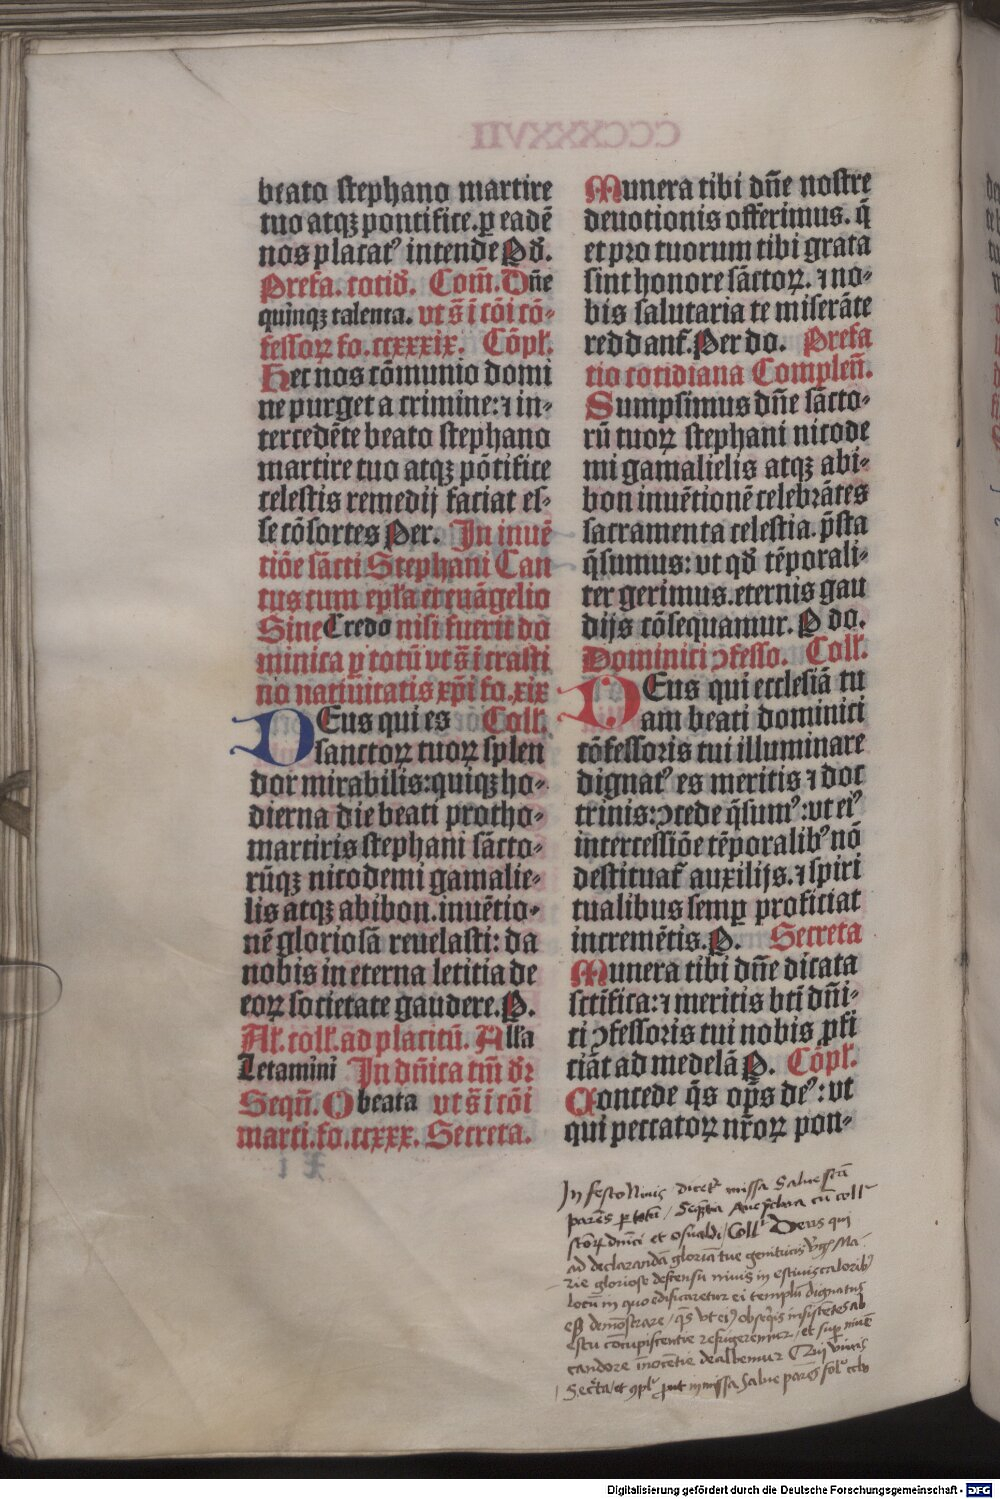 beato stephano martire
tuo atqꝫ pontifice. ꝑ eadē
nos placatꝰ intende Pͦ d̄.
Prefa. cotid̄. Com̄. Dn̄e
quinqꝫ talenta. vt s̄ i cōi cō-
fessoꝝ fo. ccxxxix. Cōpl̄.
Hec nos cōmunio domi
ne purget a crimine: ⁊ in-
tercedēte beato stephano
martire tuo atqꝫ pōtifice
celestis remedij faciat es-
se cōsortes Per. In inuē
tiōe sācti Stephani Can
tus cum ep̄la et euāgelio
Sine Credo nisi fuerit do
minica ꝑ totū vt s̄ i crasti
no natiuitatis xp̄i fo. xix
DEus qui es Coll̄.
sanctoꝝ tuoꝝ splen
dor mirabilis: quiqꝫ ho-
dierna die beati protho-
martiris stephani sācto-
rūqꝫ nicodemi gamalie-
lis atqꝫ abibon. inuētio-
nē gloriosā reuelasti: da
nobis in eterna letitia de
eoꝝ societate gaudere. P.
Al̄. coll̄. ad placitū. All̄a
Letamini In dn̄ica tm̄ dr̄
Sequn̄. O beata vt s̄ i cōi
marti. fo. ccxxx. Secreta.
Munera tibi dn̄e nostre
deuotionis offerimus. q̄
et pro tuorum tibi grata
sint honore sāctoꝝ. ⁊ no-
bis salutaria te miserāte
reddant̄. Per do. Prefa
tio cotidiana Complen̄.
Sumpsimus dn̄e sācto-
rū tuoꝝ stephani nicode
mi gamalielis atqꝫ abi-
bon inuētionē celebrātes
sacramenta celestia. p̄sta
q̄sumus: vt qd̄ tēporali-
ter gerimus. eternis gau
dijs cōsequamur. P do.
Dominici ↄfesso. Coll̄.
DEus qui ecclesiā tu
am beati dominici
cōfessoris tui illuminare
dignatꝰ es meritis ⁊ doc
trinis: ↄcede q̄sumꝰ: vt eiꝰ
intercessiōe tēporalibꝰ nō
destituat̄ auxilijs. ⁊ spiri
tualibus semꝑ proficiat
incremētis. P. Secreta
Munera tibi dn̄e dicata
sctīfica: ⁊ meritis bt̄i dn̄i-
ci ↄfessoris tui nobis ꝓfi
ciāt ad medelā P. Cōpl̄.
Concede q̄s op̄s deꝰ: vt
qui peccatoꝝ nr̄oꝝ pon-
In festo Niuis dicet᷑ missa Salue scā
parēs ꝑ totū / Seq̄tia Aue p̄clara cū coll᷑
sctoꝝ dn̄ici et osualdi / Coll᷑ Deus qui
ad declarandā gloriā tue genitricis v̄gīs Ma-
rie gloriose descensu niuis in estiuis caloribꝰ
locū in quo edificaretur ei templū dignatus
es demōstrare / q̄s vt eiꝰ obseq̄is insistētes ab
estu cōcupiscentie refrigeremur / et suꝑ niuē
candore īnocētie dealbemur Qui viuis
Secr̄ta / et ↄpl᷑ ꝓut in missa Salue parēs fol᷑
Digitalisierung gefördert durch die Deutsche Forschungsgemeinschaft - DFG